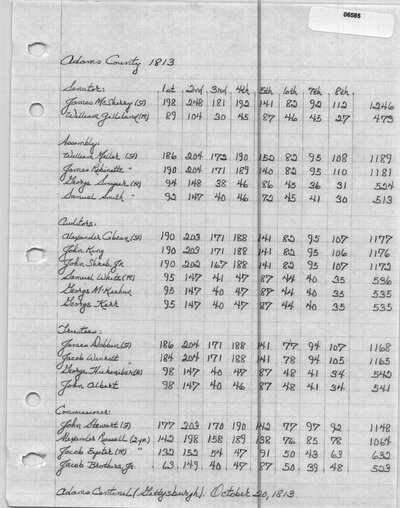 06585
Adams County 1813
Senator: 1st 2nd 3rd 4th 5th 6th 7th 8th
James McSherry (F) 198 248 181 192 141 82 92 112 1246
William Gilliland (R) 89 104 30 45 87 46 45 27 473
Assembly:
William Miller (F) 186 204 172 190 152 82 95 108 1189
James Robinette " 190 204 171 189 140 82 95 110 1181
George Smyser (R) 94 148 38 46 86 45 36 31 524
Samuel Smith " 92 147 40 46 72 45 41 30 513
Auditors:
Alexander Cobean (F) 190 203 171 188 141 82 95 107 1177
John King 190 203 171 188 141 82 95 106 1176
John Shorb, Jr. 190 202 167 188 141 82 95 107 1172
Samuel White (R) 95 147 41 47 87 44 40 35 536
George McKeehan 95 147 40 47 87 44 40 35 535
George Kerr 95 147 40 47 87 44 40 35 535
Trustees:
James Dobbin (F) 186 204 171 188 141 77 94 107 1168
Jacob Winrott 184 204 171 188 141 78 94 105 1165
George (R) 98 147 40 47 87 48 41 34 542
John Albert 98 147 40 46 87 48 41 34 541
Commissioner:
John Stewart (F) 177 203 170 190 142 77 97 92 1148
Alexander Russell (2 yr.) 142 198 158 189 138 76 85 78 1064
Jacob Eyster (R) 132 152 54 47 91 50 43 63 632
Jacob Brothers, Jr. 63 149 40 47 87 50 39 48 523
Adams Centinel (Gettysburgh). October 20, 1813.